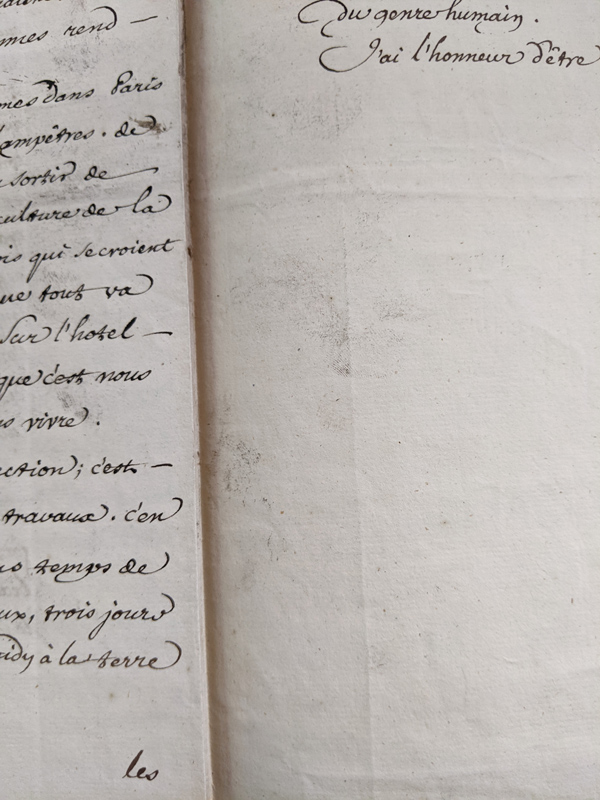 mmes rend —
mes dans Paris
champêtres. de
sortir de
culture de la
ois qui se croient
que tout va
Sur l'hotel —
que c'est nous
vivre.
ction; c'est —
travaux. c'en
temps de
ux, trois jours
midy à la terre
les
du genre humain.
J'ai l'honneur d'être